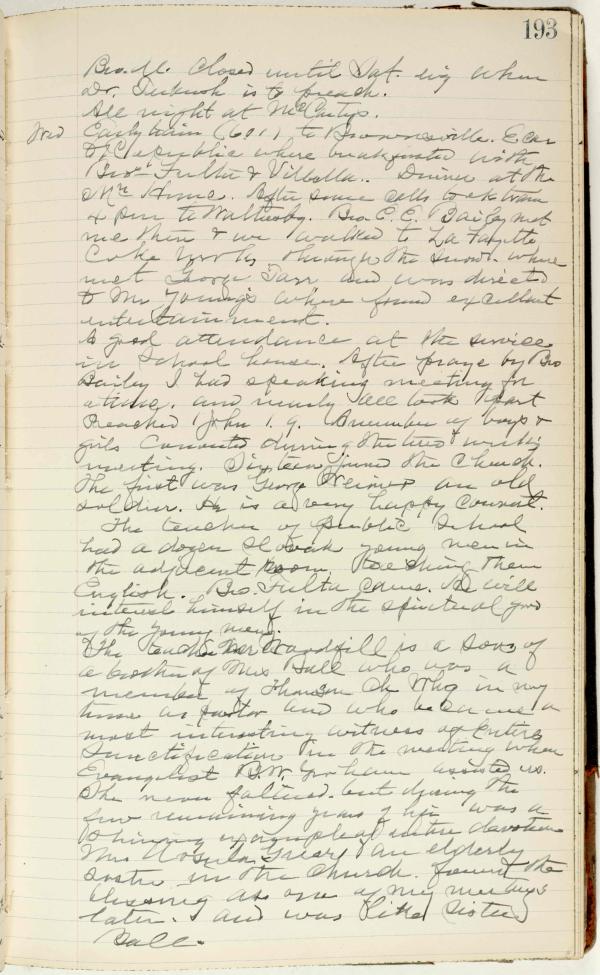 193
Bro. M. Closed until Sat. eig when
Dr. is to preach.
All night at McCartys.
Wed Early train (601) to Brownsville. E car
to Republic where breakfasted with
Bros. Fulton & Villella. Dinner at the
Mr Home. After some calls took train
4 P.m to Waltersby. Bro C. E. Bailey met
me then & we walked to La Fayette
Coke Works through the snow. where
met George Tarr and was directed
to Mr Young's where found excellent
entertainment.
A good attendance at the service
in School house. After praye by Bro
Bailey I had speaking meeting for
a time. and nearly all took part
Preached 1 John 1.9. A number of boys &
girls Converted during the two weeks
meeting. Sixteen joined the Church.
The first was George an old
soldier. He is a very happy convert.
The teacher of public School
had a dozen Slovak young men in
the adjacent room. Teaching them
English. Bro. Fulton came. He will
interest himself in the spiritual good
of the young men.
The teacher Mr Woodfill is a son of
a brother of Mrs Ball who was a
member of Thomson Ch Whg in my
time as pastor and who became a
most interesting witness of Entire
Sanctification in the meeting when
Evangelist B.W. Gorham assisted us.
She never faltered. but during the
few remaining years of life was a
Shining example of entire devotion
Mrs an elderly
sister in the Church. found the
blessing at one of my meetings
later. and was like Sister
Ball.